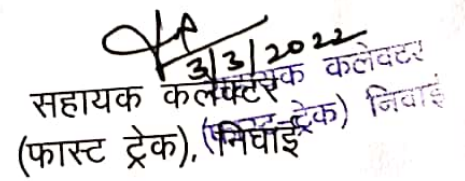 3/3/2022
सहायक कलेक्टर
(फास्ट ट्रेक), निवाई
सहायक कलेक्टर
(फास्ट ट्रेक) निवाई